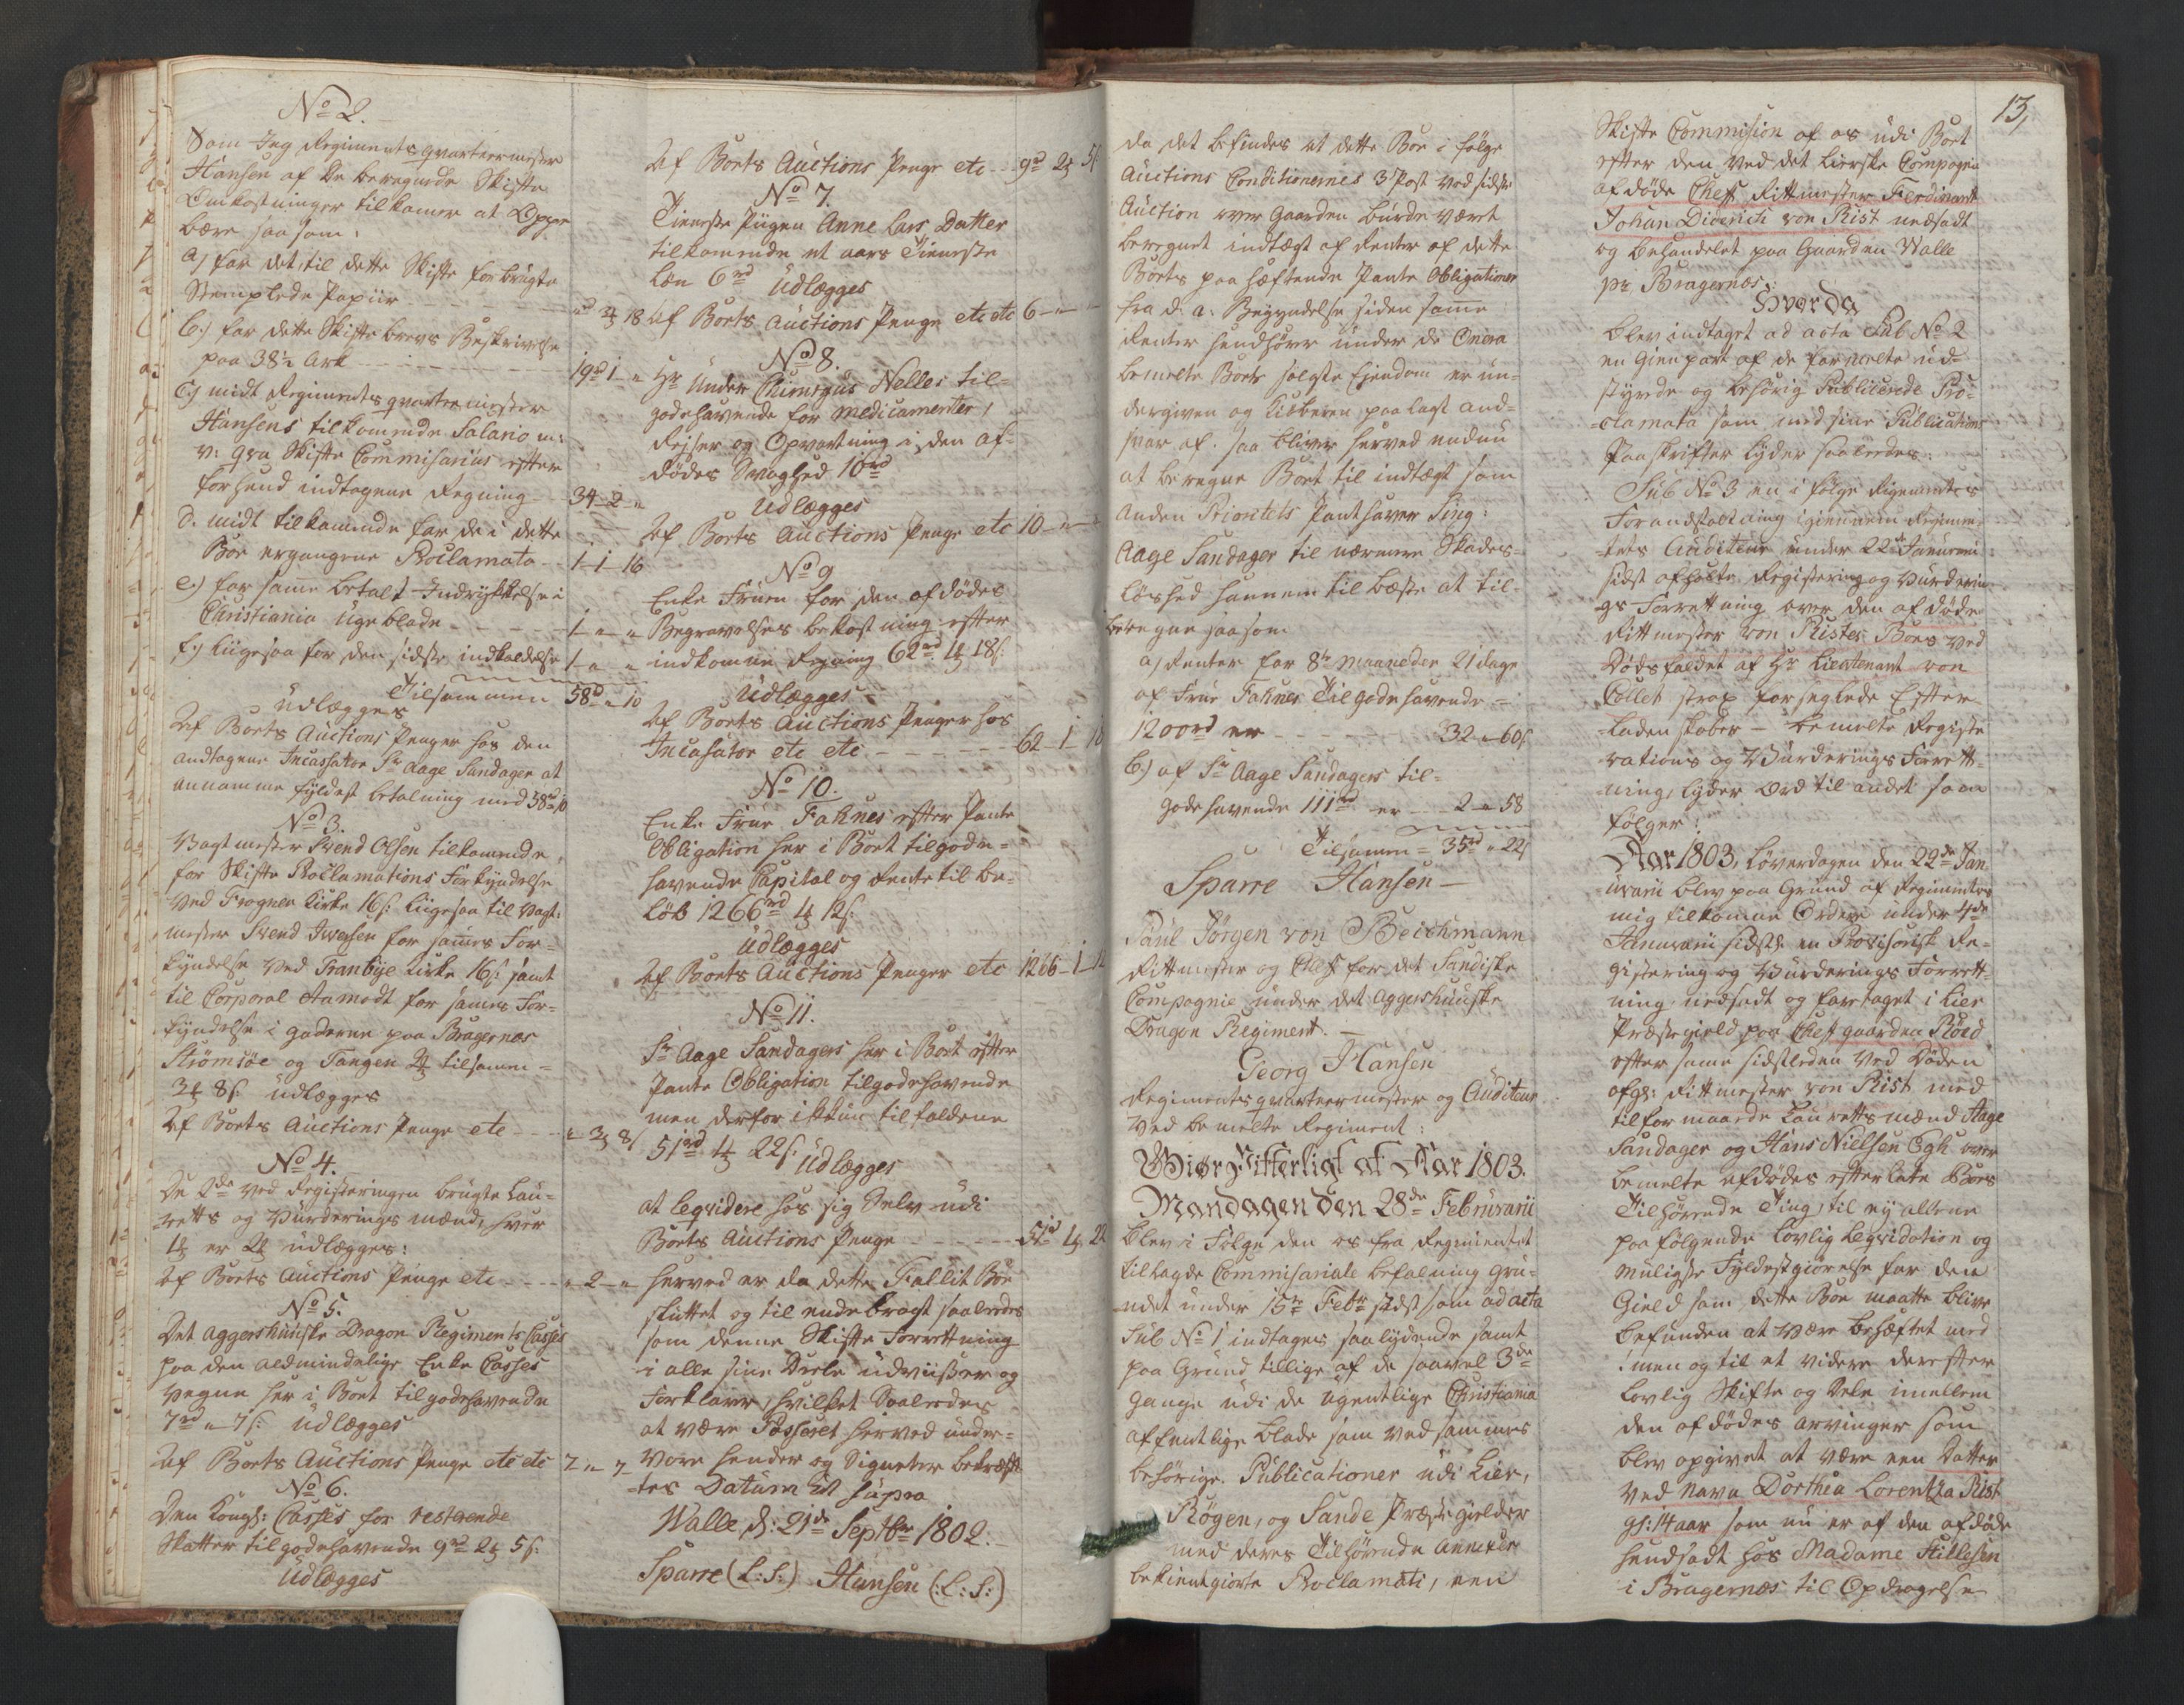 No 2.
Som Jeg Regiments qvarteermester
Hansen af De beregnede Skifte
Omkostninger tilkommer at Oppe
bære saasom:
a) for det til dette Skifte forbrugte
Stemplede Papiir - - -
" 4 18
b.) for dette Skiftebrevs Beskrivelse
paa 38½ Ark - - - -
19d 1 "
c.) midt Regiments qvarteermester
Hansens tilkommende Salario m:
v: qva Skifte Commisarius efter
forhend indtagene Regning -
34 - 2 - "
d. midt tilkommende for de i dette
Boe ergangene Proclamata -
1 - 1 - 16
e.) for samme betalt Indrykkelse i
Christiania Ugeblade - - -
1 - " - "
f.) liigesaa for den sidste indkaldelse
1 - " - "
Tilsammen 58d " 10
Udlægges
Af Boets Auctions Penger hos den
andtagene Incassator Sr Aage Sandager at
annamme fyldest betalning med 58rd " 10
No 3.
Vagtmester Svend Olsen tilkommende
for Skifte Proclamations Forkyndelse
ved Frogner Kirke 16s: liigesaa til Vagt:
mester Svend Iversen for sammes For=
kyndelse ved Tranbye Kirke 16s: samt
til Corporal Aamodt for sammes For=
kyndelse i gaderne paa Bragernæs
Strømsøe og Tangen 2 tilsamm=
3 8s: udlægges
Af Boets Auctions Penge etc - - " 3 8s
No 4.
De 2de ved Registeringen brugte Lau=
retts og Vurderings mænd, hver
1 er 2 udlægges:
Af Boets Auctions Penge etc - - - " - 2 - "
No 5.
Det Aggershuusiske Dragon Regiments Casses
paa den aldmindelige Enke Casses
vegne her i Boet tilgodehavende
7rd " 7s: udlægges
Af Boets Auctions Penge etc etc 7 " 7
No 6.
Den Kongl: Casses for resterende
Skatter tilgodehavende 9rd 2 5s:
Udlægges
Af Boets Auctions Penge etc - - 9d 2 5s
No 7.
Tieneste Piigen Anne Lars Datter
tilkommende et aars Tieneste
Løn 6rd Udlægges
Af Boets Auctions Penge etc etc 6 - " - "
No 8.
Hr Under Chirurgus Nelles til=
godehavende for medicamenter,
Rejser og Opvartning i den af=
dødes Svaghed 10rd
Udlægges
Af Boets Auctions Penge etc 10 - " - "
No 9
Enke Fruen for den afdødes
Begravelses bekostning efter
indkomne Regning 62rd 1 18s:
Udlægges
Af Boets Auctions Penger hos
Incasator etc etc. - - - - 62 - 1 - 18
No 10.
Enke Frue Fahnes efter Pante
Obligation her i Boet tilgode=
havende Capital og Rente til be=
løb 1266rd 1 12s:
Udlægges
Af Boets Auctions Penger etc 1266 - 1 - 12
No 11.
Sr Aage Sandagers her i Boet efter
Pante Obligation tilgodehavende
men derfor ikkun tilfaldene
51rd 1 22s: Udlægges
at leqvidere hos sig Selv udi
Boets Auctions Penge - - - - 51d 1 22
herved er da dette Fallit Boe
sluttet og til ende bragt saaledes
som denne Skifte Forrettning
i alle sine Deele udviiser og
forklarer, hvilket Saaledes
at være Passeret herved under=
vore hender og Signeter bekræft=
tes Datum Ut Supra
Walle, d: 21de Septbr 1802.
Sparre (L:S:) Hansen (:L:S:)
13,
da det befindes at dette Boe i følge
Auctions Conditionernes 3 Post ved sidste
Auction over gaarden burde vært
beregnet indtægt af Renter af dette
Boets paa hæftende Pante Obligationer
fra d: a: Begyndelse siden samme
Renter henhører under de Onera
bemelte Boets solgte Ejendom er un=
dergiven og Kiøberen paalagt and=
svar af. saa bliver herved endnu
at beregne Boet til indtægt som
anden Prioritets Panthaver Sing:
Aage Sandager til nærmere Skades=
løshed hannem til beste at til=
beregne saasom
a) Renter for 8te Maaneder 21 dage
af Frue Fahnes Tilgodehavende =
1200rd er - - - - 32 " 60s
b.) af Sr Aage Sandagers til=
godehavende 111rd er - 2 " 58
Tilsamen = 35rd " 22s
Sparre Hansen -
Paul Jørgen von Beichmann
Rittmester og Chef for det Sandiske
Compagnie under det Aggershuusiske
Dragon Regiment. -
Georg Hansen
Regiments qvarteermester og Auditeur
ved bemelte Regiment:
Giør Vitterligt at Aar 1803.
Mandagen den 28de Februarii
blev i Følge den os fra Regimentet
tillagde Commisariale befalning gru=
ndet under 15te Febr sidst som ad acta
sub No 1 indtages saalydende samt
paa Grund tillige af de saavel 3de
gange udi de ugentlige Christiania
offentlige blade som ved sammes
behørige Publicationer udi Lier,
Røgen, og Sande Præstegielder
med deres Tilhørende Annexer
bekientgiorte Proclamati, een
Skifte Commision af os udi Boet
efter den ved det Lierske Compagnie
afdøde Chef Rittmester Ferdinant
Johan Diderich von Rist nedsadt
og behandelet paa Gaarden Walle
pr Bragernæs.
Hvorda
blev indtaget ad acta sub No 2
en Gienpart af de formelte ud=
styrede og behørig Publicerede Pro=
clamata som med sine Publications
Paaskrifter lyder saaledes.
Sub No 3 en i følge Regimentets
Foranstaltning igiennem Regimen=
tets Auditeur under 22d Januarii
sidst afholte Registering og Vurderin
gs Forrettning over den afdøde
Rittmester von Ristes Boes ved
Dødsfaldet af Hr Lieutenant von
Collet strax forseglede Efter=
ladenskaber - bemelte Registe
rations og Vurderings Forrett=
ning, lyder Ord til andet som
følger:
Aar 1803, Løverdagen den 22de Jan
uarii blev paa Grund af Regimentets
mig tilkomne Ordre under 4de
Januarii sidstl: en Provisorisk Re=
gistering og Vurderings Forrett=
ning nedsadt og foretaget i Lier
Præstegield paa Chefsgaarden Røed
efter samme sidstleden ved Døden
afgl: Rittmester von Rist med
tilformaaede Laurettsmænd Aage
Sandager og Hans Nielsen Egh over
bemelte afdødes efterlate Boes
Tilhørende Ting, til ey alleene
paa følgende lovlig leqvidation og
muligste Fyldestgiørelse for den
Gield som dette Boe maatte blive
befunden at være behæftet med
: men og til et videre derefter
lovlig Skifte og Dele imellem
den afdødes arvinger som
blev opgivet at være een Datter
ved Navn Dorthea Lorentza Rist
gl: 14 aar som nu er af den afdøde
hensadt hos Madame Hillesen
i Bragernæs til Opdragelse